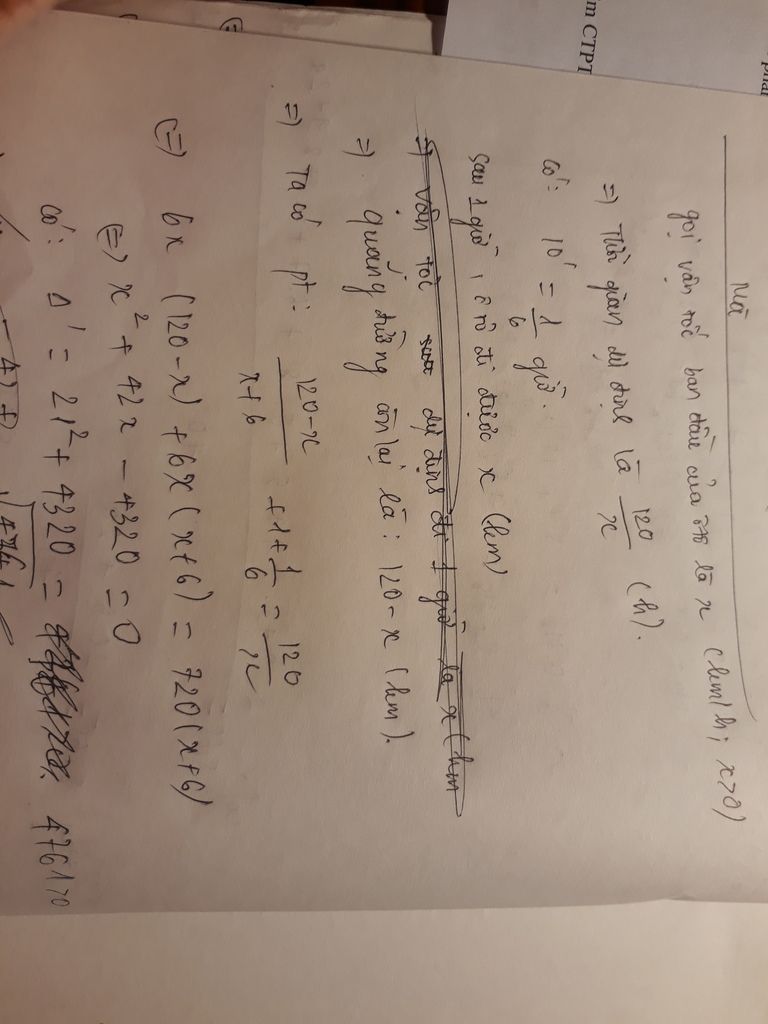 m CTPT
gọi vận tốc ban đầu của ôtô là x (km/h; x>0)
=) Thời gian dự định là 120/x (h).
Có: 10' = 1/6 giờ.
Sau 1 giờ, ô tô đi được x (km)
=) Vận tốc sau dự định đi 1 giờ là x (km
=) quãng đường còn lại là: 120-x (km).
=) Ta có pt: (120-x)/(x+6) + 1 + 1/6 = 120/x
(=) 6x (120-x) + 6x(x+6) = 720(x+6)
(=) x² + 42x - 4320 = 0
Có: Δ' = 21² + 4320 = 4761>0